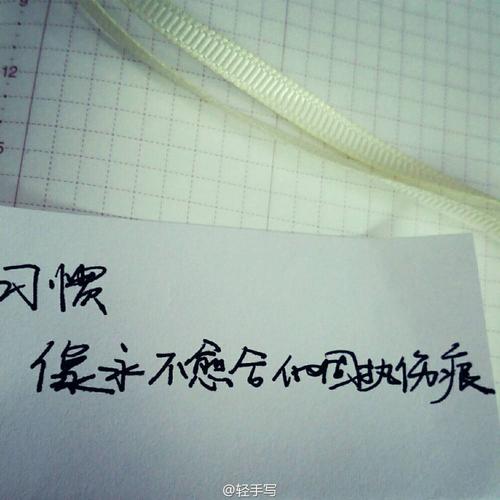 9
12
5
习惯
像永不愈合的固执伤痕
@轻手写